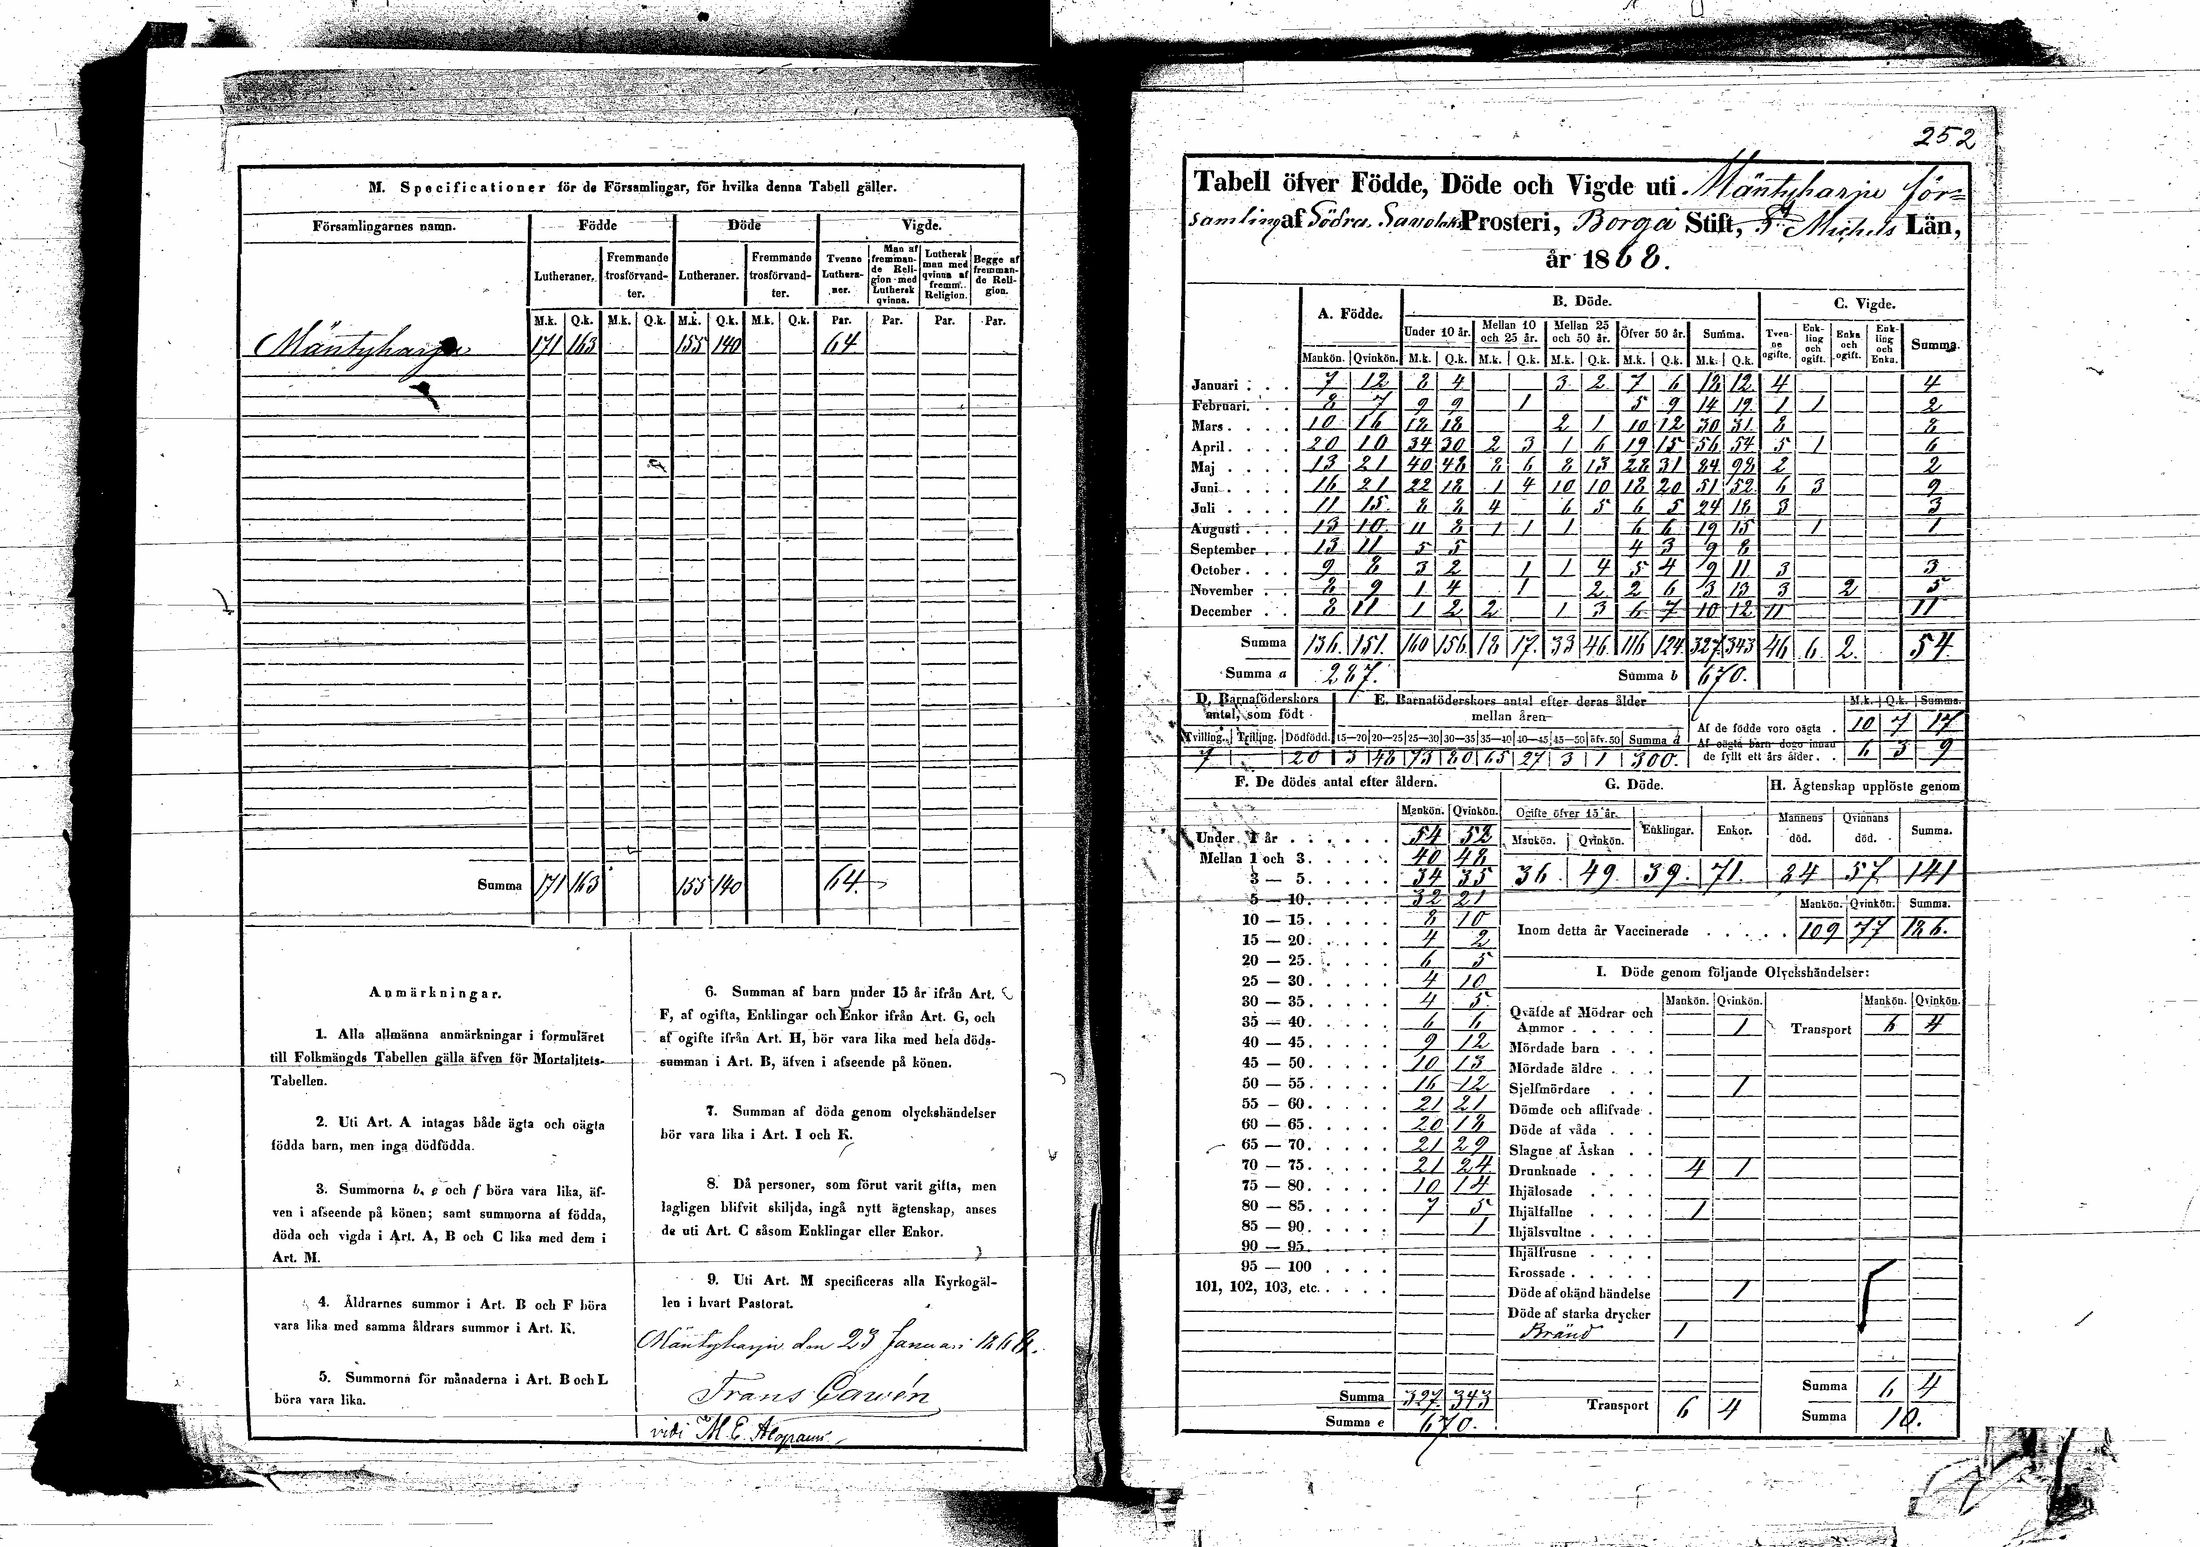 M. Specificationer för de Församlingar, för hvilka denna Tabell gäller.
Församlingarnes namn. Födde Döde Vigde.
Lutheraner. Fremmande trosförvandter. Lutheraner. Fremmande trosförvandter. Tvenne Lutheraner. Man af fremmande Religion med Luthersk qvinna. Luthersk man med qvinna af fremm. Religion. Begge af fremmande Religion.
M.k. Q.k. M.k. Q.k. M.k. Q.k. M.k. Q.k. Par. Par. Par. Par.
Mäntyharju 171 163 155 140 64
Summa 171 163 155 140 64
Anmärkningar.
1. Alla allmänna anmärkningar i formuläret
till Folkmängds Tabellen gälla äfven för Mortalitets-
Tabellen.
2. Uti Art. A intagas både ägta och oägta
födda barn, men inga dödfödda.
3. Summorna b, e och f böra vara lika, äf-
ven i afseende på könen; samt summorna af födda,
döda och vigda i Art. A, B och C lika med dem i
Art. M.
4. Åldrarnes summor i Art. B och F böra
vara lika med samma åldrars summor i Art. K.
5. Summorna för månaderna i Art. B och L
böra vara lika.
6. Summan af barn under 15 år ifrån Art.
F, af ogifta, Enklingar och Enkor ifrån Art. G, och
af ogifte ifrån Art. H, bör vara lika med hela döds-
summan i Art. B, äfven i afseende på könen.
7. Summan af döda genom olyckshändelser
bör vara lika i Art. I och K.
8. Då personer, som förut varit gifta, men
lagligen blifvit skiljda, ingå nytt ägtenskap, anses
de uti Art. C såsom Enklingar eller Enkor.
9. Uti Art. M specificeras alla Kyrkogäl-
len i hvart Pastorat.
Mäntyharju den 23 Januari
Frans Cawén
vidi M. E.
252
Tabell öfver Födde, Döde och Vigde uti Mäntyharju för=
samling af Södra Savolaks Prosteri, Borgå Stift, St Michels Län,
år 1868.
A. Födde. B. Döde. C. Vigde.
Under 10 år. Mellan 10 och 25 år. Mellan 25 och 50 år. Öfver 50 år. Summa. Tvenne ogifte. Enkling och ogift. Enka och ogift. Enkling och Enka. Summa.
Mankön. Qvinkön. M.k. Q.k. M.k. Q.k. M.k. Q.k. M.k. Q.k. M.k. Q.k.
Januari 7 12 8 4 3 2 7 6 18 12 4 4
Februari 8 7 9 9 1 5 9 14 19 1 1 2
Mars 10 16 18 18 2 1 10 12 30 31 8 8
April 20 10 34 30 2 3 1 6 19 15 56 54 5 1 6
Maj 13 21 40 48 8 6 8 13 28 31 84 98 2 2
Juni 16 21 22 18 1 4 10 10 18 20 51 52 6 3 9
Juli 11 15 8 8 4 6 5 6 5 24 18 3 3
Augusti 13 10 11 8 1 1 1 6 6 19 15 1 1
September 13 11 5 5 4 3 9 8
October 9 8 3 2 1 1 4 5 4 9 11 3 3
November 8 9 1 4 1 2 2 6 3 13 3 2 5
December 8 11 1 2 2 1 3 6 7 10 12 11 11
Summa 136. 151. 160 156. 18 17. 33 46. 116 124. 327. 343 46 6. 2. 54.
Summa a 287. Summa b 670.
D. Barnaföderskors antal, som född
E. Barnaföderskors antal efter deras ålder mellan åren
M.k. Q.k. Summa.
Tvilling. Trilling. Dödfödd. 15—20 20—25 25—30 30—35 35—40 40—45 45—50 öfv. 50 Summa d
7 20 3 48 73 80 65 27 3 1 300.
Af de födde voro oägta 10 7 17
Af oägta barn dogo innan de fyllt ett års ålder 6 3 9
F. De dödes antal efter åldern.
Mankön. Qvinkön.
Under 1 år 54 52
Mellan 1 och 3 40 48
3 — 5 34 35
5 — 10 32 21
10 — 15 8 10
15 — 20 4 2
20 — 25 6 5
25 — 30 4 10
30 — 35 4 5
35 — 40 6 6
40 — 45 9 12
45 — 50 10 13
50 — 55 16 12
55 — 60 21 21
60 — 65 20 18
65 — 70 21 29
70 — 75 21 24
75 — 80 10 14
80 — 85 7 5
85 — 90 1
90 — 95
95 — 100
101, 102, 103, etc.
Summa 327. 343
Summa e 670.
G. Döde. H. Ägtenskap upplöste genom
Ogifte öfver 15 år. Enklingar. Enkor. Mannens död. Qvinnans död. Summa.
Mankön. Qvinkön.
36. 49. 39. 71. 84 57 141
Mankön. Qvinkön. Summa.
Inom detta år Vaccinerade 109 77 186.
I. Döde genom följande Olyckshändelser:
Mankön. Qvinkön. Mankön. Qvinkön.
Qväfde af Mödrar och Ammor 1 Transport 6 4
Mördade barn
Mördade äldre
Sjelfmördare 1
Dömde och aflifvade
Döde af våda
Slagne af Åskan
Drunknade 4 1
Ihjälosade
Ihjälfallne 1
Ihjälsvultne
Ihjälfrusne
Krossade
Döde af okänd händelse 1
Döde af starka drycker
Bränd 1
Transport 6 4
Summa 6 4
Summa 10.